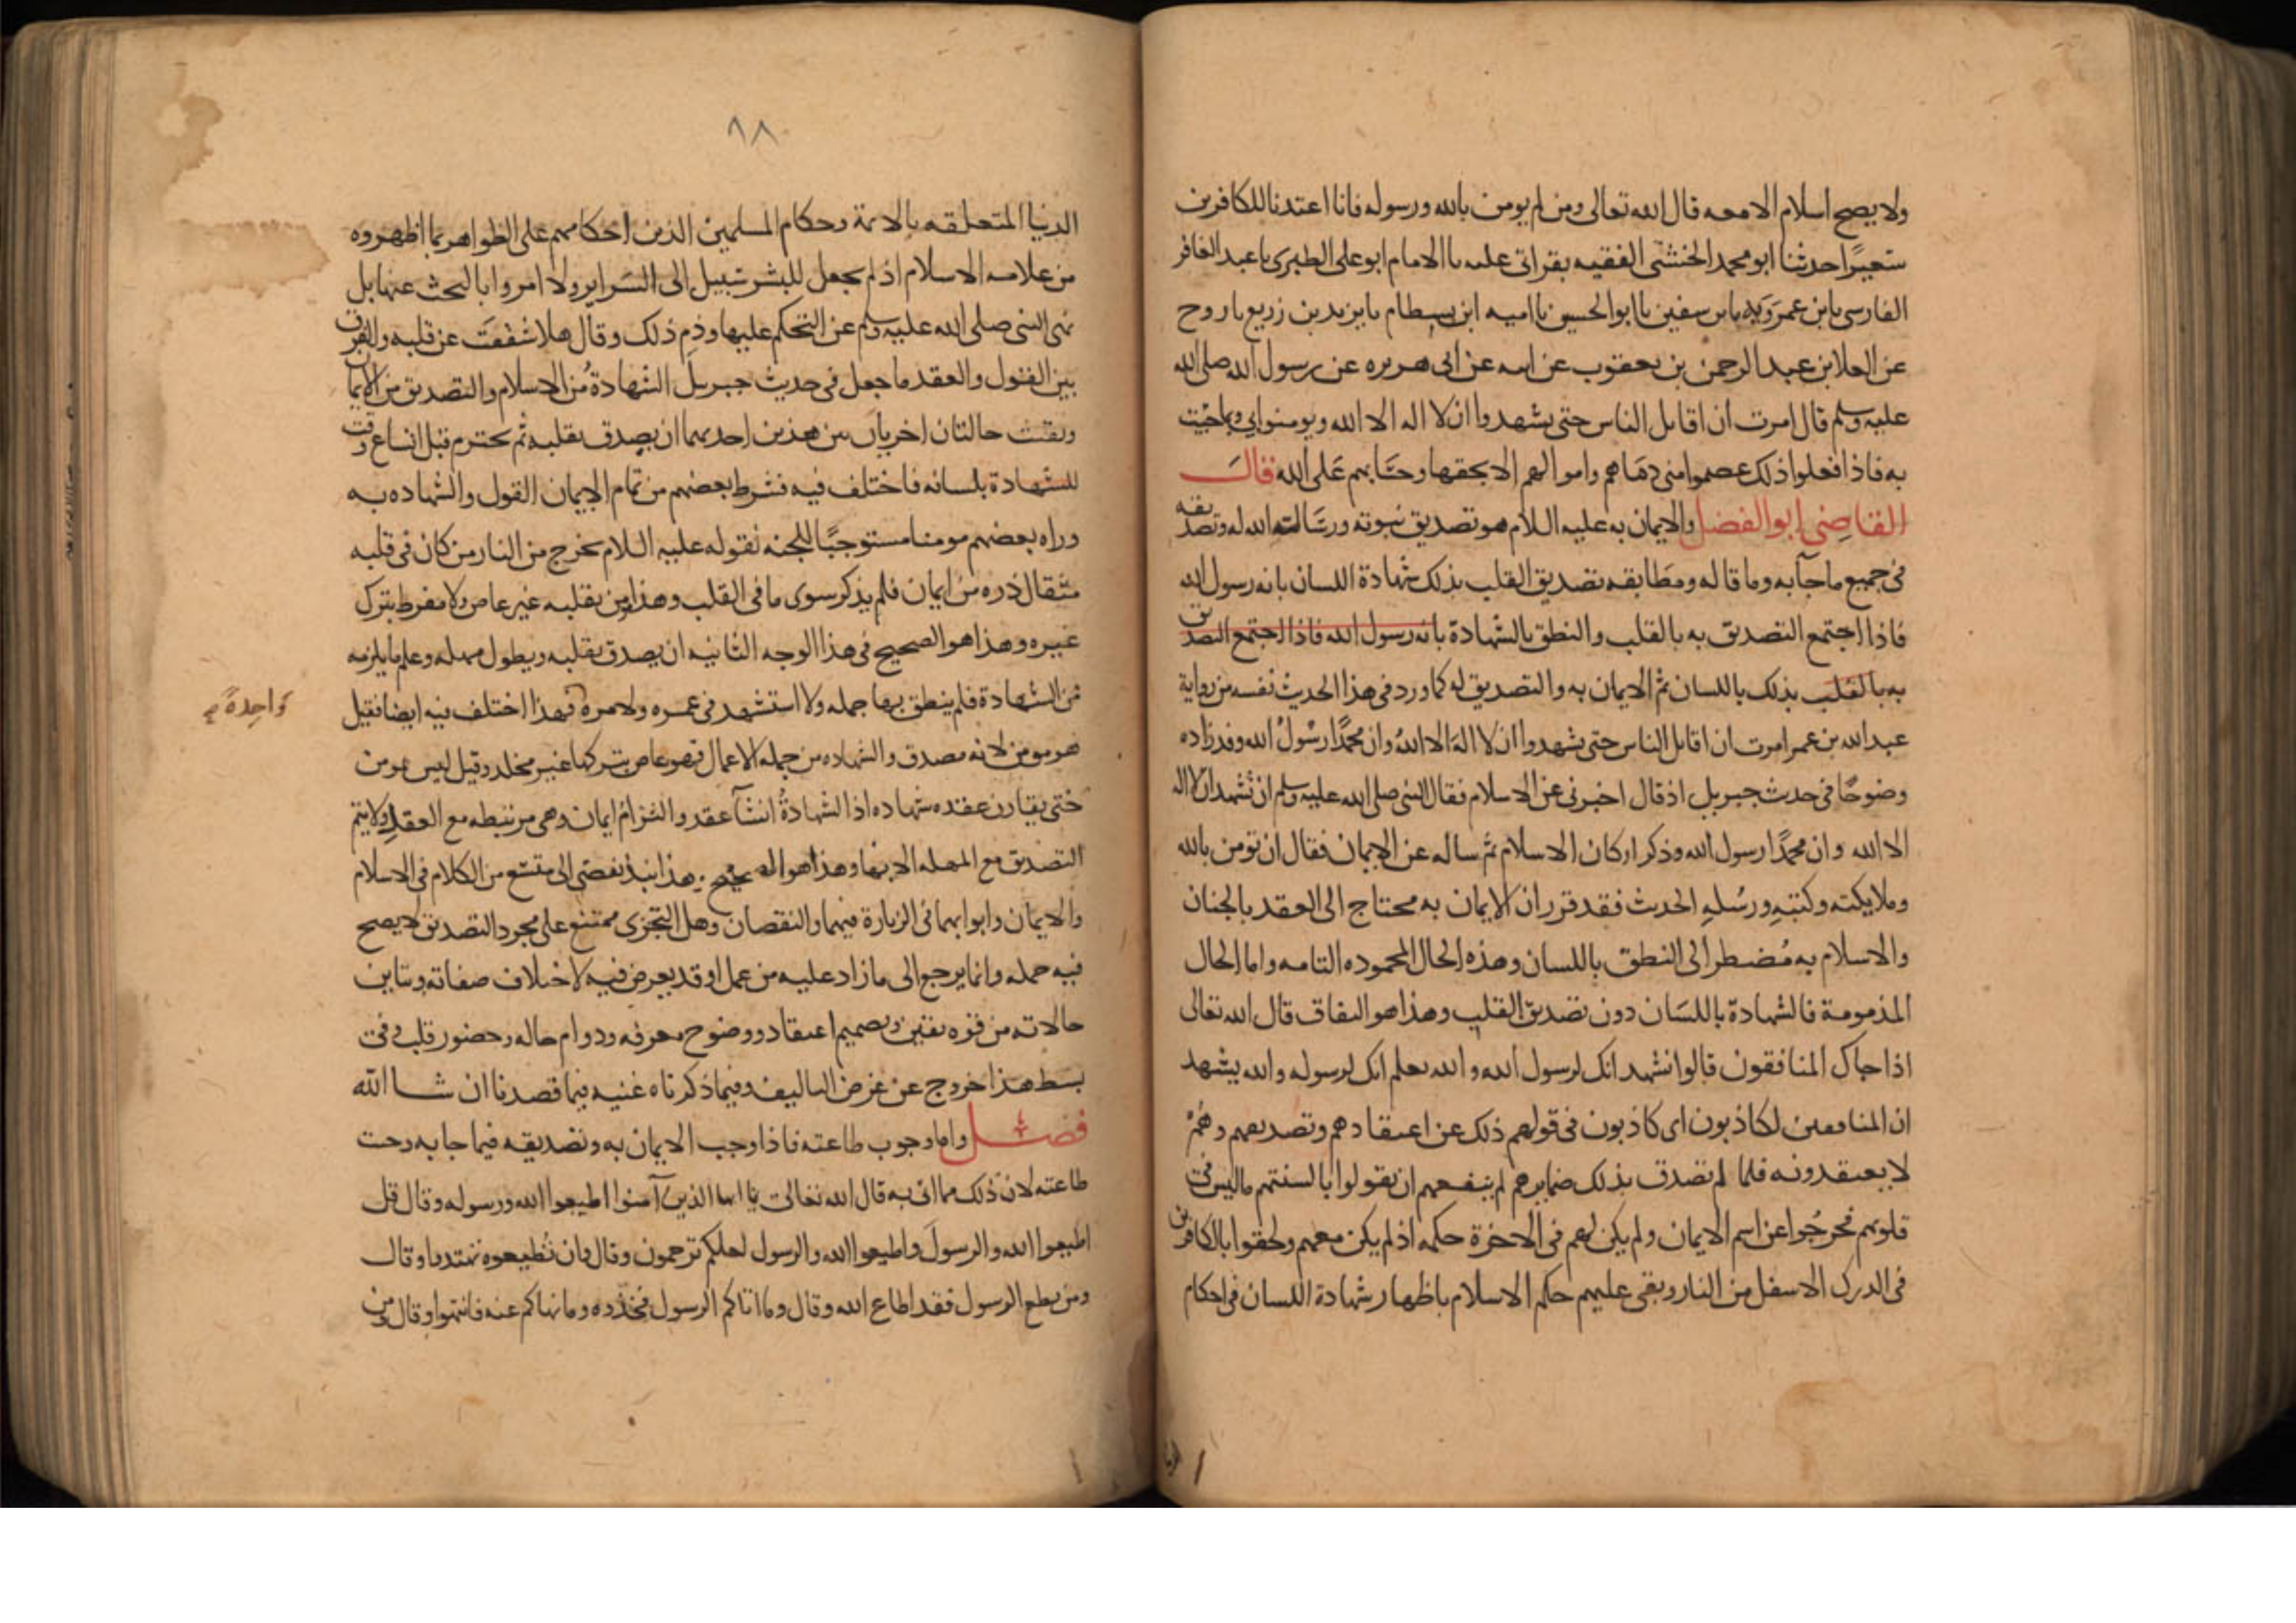 ولا يصح اسلام الا معه قال الله تعالى ومن لم يومن بالله ورسوله فانا اعتدنا للكافرين
سعيرًا حدثنا ابو محمد الخشنى الفقيه بقراتى عليه نا الامام ابو على الطبرى نا عبد الغافر
الفارسى نا ابن عمرويه نا ابن سفين نا ابو الحسين نا اميه ابن بسطام نا يزيد بن زريع نا روح
عن العلا بن عبد الرحمن بن يعقوب عن ابيه عن ابى هريره عن رسول الله صلى الله
عليه وسلم قال امرت ان اقاتل الناس حتى يشهدوا ان لا اله الا الله ويومنوا بي وبما جيت
به فاذا فعلوا ذلك عصموا منى دماهم واموالهم الا بحقها وحسابهم على الله قال
القاضى ابو الفضل والايمان به عليه السلام هو تصديق نبوته ورسالة الله له وتصديقه
فى جميع ما جآ به وما قاله ومطابقه تصديق القلب بذلك شهادة اللسان بانه رسول الله
فاذا اجتمع التصديق به بالقلب والنطق بالشهادة بانه رسول الله فاذا اجتمع التصديق
به بالقلب بذلك باللسان تم الايمان به والتصديق له كما ورد فى هذا الحديث نفسه من رواية
عبد الله بن عمر امرت ان اقاتل الناس حتى يشهدوا ان لا اله الا الله وان محمدًا رسول الله وقد زاده
وضوحًا فى حديث جبريل اذ قال اخبرنى عن الاسلام فقال النبى صلى الله عليه وسلم ان تشهد ان لا اله
الا الله وان محمدًا رسول الله وذكر اركان الاسلام ثم ساله عن الايمان فقال ان تومن بالله
وملايكته وكتبه ورسله الحديث فقد قرر ان الايمان به محتاج الى العقد بالجنان
والاسلام به مضطر الى النطق باللسان وهذه الحال المحموده التامه واما الحال
المذمومة فالشهادة باللسان دون تصديق القلب وهذا هو النفاق قال الله تعالى
اذا جاك المنافقون قالوا نشهد انك لرسول الله والله يعلم انك لرسوله والله يشهد
ان المنافقين لكاذبون اى كاذبون فى قولهم ذلك عن اعتقادهم وتصديقهم وهم
لا يعتقدونه فلما لم تصدق بذلك ضمايرهم لم ينفعهم ان يقولوا بالسنتهم ما ليس فى
قلوبهم فخرجوا عن اسم الايمان ولم يكن لهم فى الاخرة حكمه اذ لم يكن معهم ولحقوا بالكافرين
فى الدرك الاسفل من النار وبقى عليهم حكم الاسلام باظهار شهادة اللسان فى احكام
الدنيا
٩٨
الدنيا المتعلقه بالايمة وحكام المسلمين الذين احكامهم على الظواهر بما اظهروه
من علامه الاسلام اذ لم يجعل للبشر سبيل الى السراير ولا امروا بالبحث عنها بل
نهى النبى صلى الله عليه وسلم عن التحكم عليها وذم ذلك وقال هلا شققت عن قلبه والفرق
بين القول والعقد ما جعل فى حديث جبريل الشهادة من الاسلام والتصديق من الايمان
وبقيت حالتان اخريان بين هذين احديهما ان يصدق بقلبه ثم يخترم قبل اتساع وقت
للشهادة بلسانه فاختلف فيه فشرط بعضهم من تمام الايمان القول والشهاده به
وراه بعضهم مومنا مستوجبًا للجنه لقوله عليه السلام يخرج من النار من كان فى قلبه
مثقال ذره من ايمان فلم يذكر سوى ما فى القلب وهذا مومن بقلبه غير عاص ولا مفرط بترك
غيره وهذا هو الصحيح فى هذا الوجه الثانيه ان يصدق بقلبه ويطول مهله وعلم ما يلزمه
من الشهادة فلم ينطق بها جمله ولا استشهد فى عمره ولا مرة فهذا اختلف فيه ايضا فقيل
واحدةً
هو مومن لانه مصدق والشهاده من جمله الاعمال فهو عاص بتركها غير مخلد وقيل ليس بمومن
حتى يقارن عقده شهاده اذ الشهادة انشآ عقد والتزام ايمان وهى مرتبطه مع العقد ولا يتم
التصديق مع المهله الا بها وهذا هو الصحيح وهذا نبذ تفضى الى متسع من الكلام فى الاسلام
والايمان وابوابهما فى الزيادة فيهما والنقصان وهل التجزى ممتنع على مجرد التصديق لا يصح
فيه جمله وانما يرجع الى ما زاد عليه من عمل او قد يعرض فيه لاختلاف صفاته وتباين
حالاته من قوه يقين وتصميم اعتقاد ووضوح معرفه ودوام حاله وحضور قلب وفى
بسط هذا خروج عن غرض التاليف وفيما ذكرناه غنيه فيما قصدنا ان شا الله
فصل واما وجوب طاعته فاذا وجب الايمان به وتصديقه فيما جا به وجبت
طاعته لان ذلك مما اتى به قال الله تعالى يا ايها الذين آمنوا اطيعوا الله ورسوله وقال قل
اطيعوا الله والرسول واطيعوا الله والرسول لعلكم ترحمون وقال وان تطيعوه تهتدوا وقال
ومن يطع الرسول فقد اطاع الله وقال وما اتاكم الرسول فخذوه وما نهاكم عنه فانتهوا وقال ومن